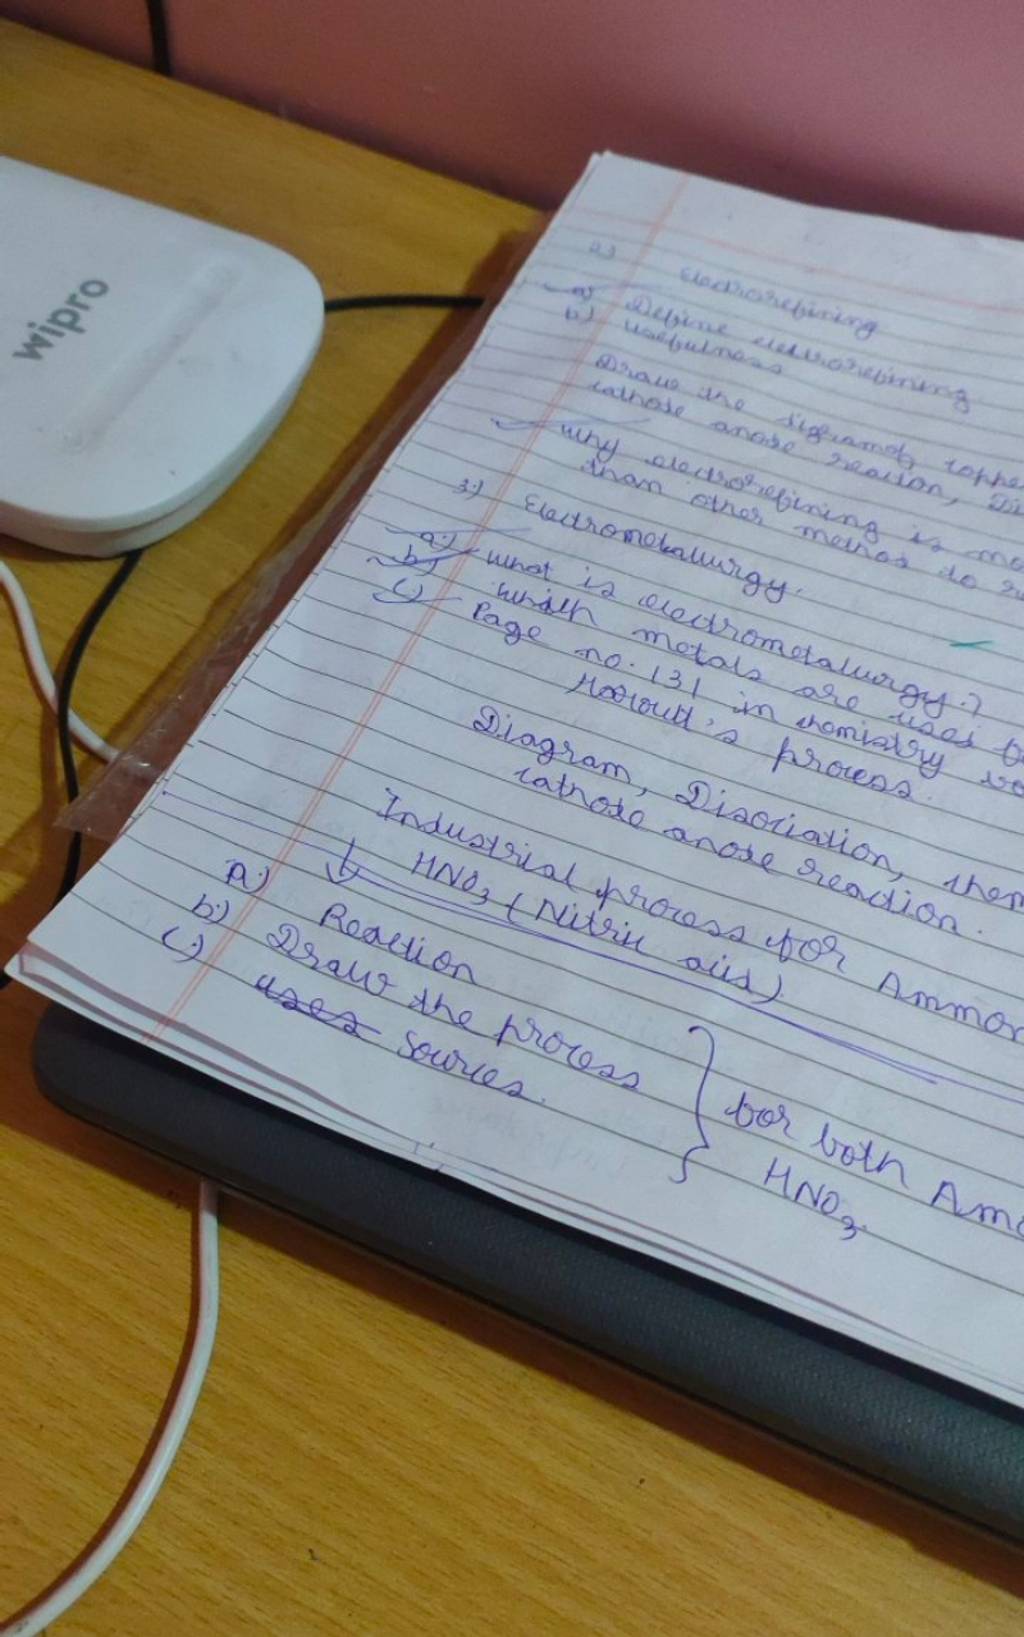 wipro
2)
Electrorefining
a) Define electrorefining
b) usefulness
Draw the
cathode anode reaction,
why electrorefining is
than other method to
3:) Electrometallurgy.
a:) what is electrometallurgy?
b) which metals are used
c:) Page no. 131 in chemistry
process.
Diagram, Dissociation, then
cathode anode reaction.
Industrial process for
HNO3 (Nitric acid)
a:) Reaction
b:) Draw the process
c:) uses Sources.
for both
HNO3.